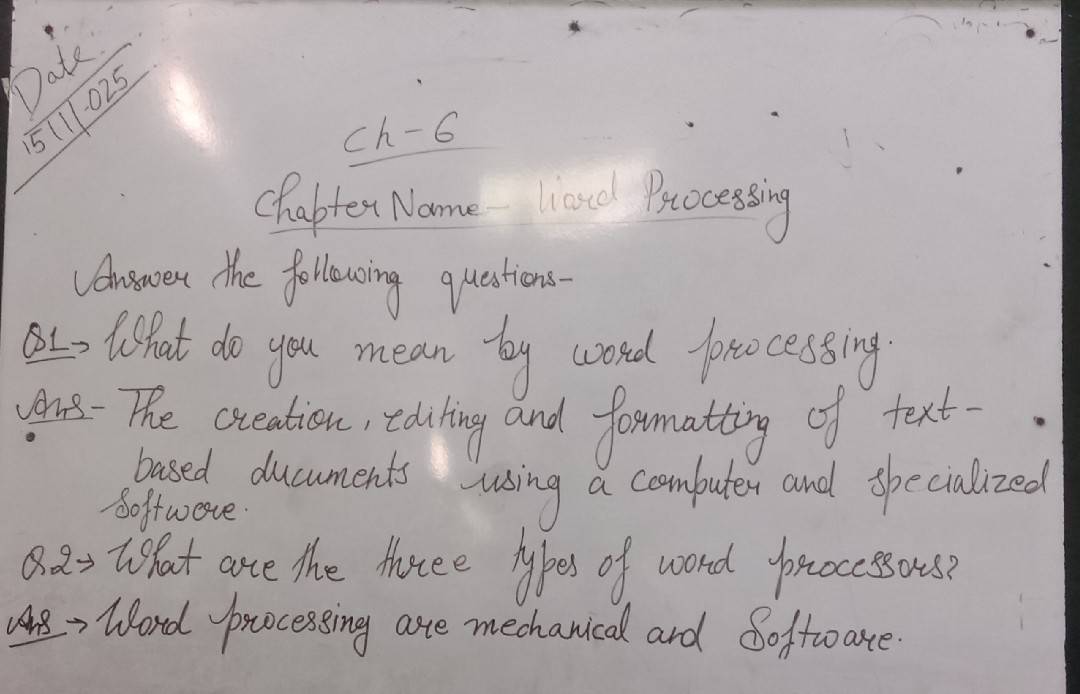 Date
15/11/025
Ch-6
Chapter Name- Word Processing
Answer the following questions-
Q1→ What do you mean by word processing.
Ans- The creation, editing and formatting of text-
based ducuments using a computer and specialized
Softwore.
Q.2→ What are the three types of word processors?
Ans → Word processing are mechanical and Software.